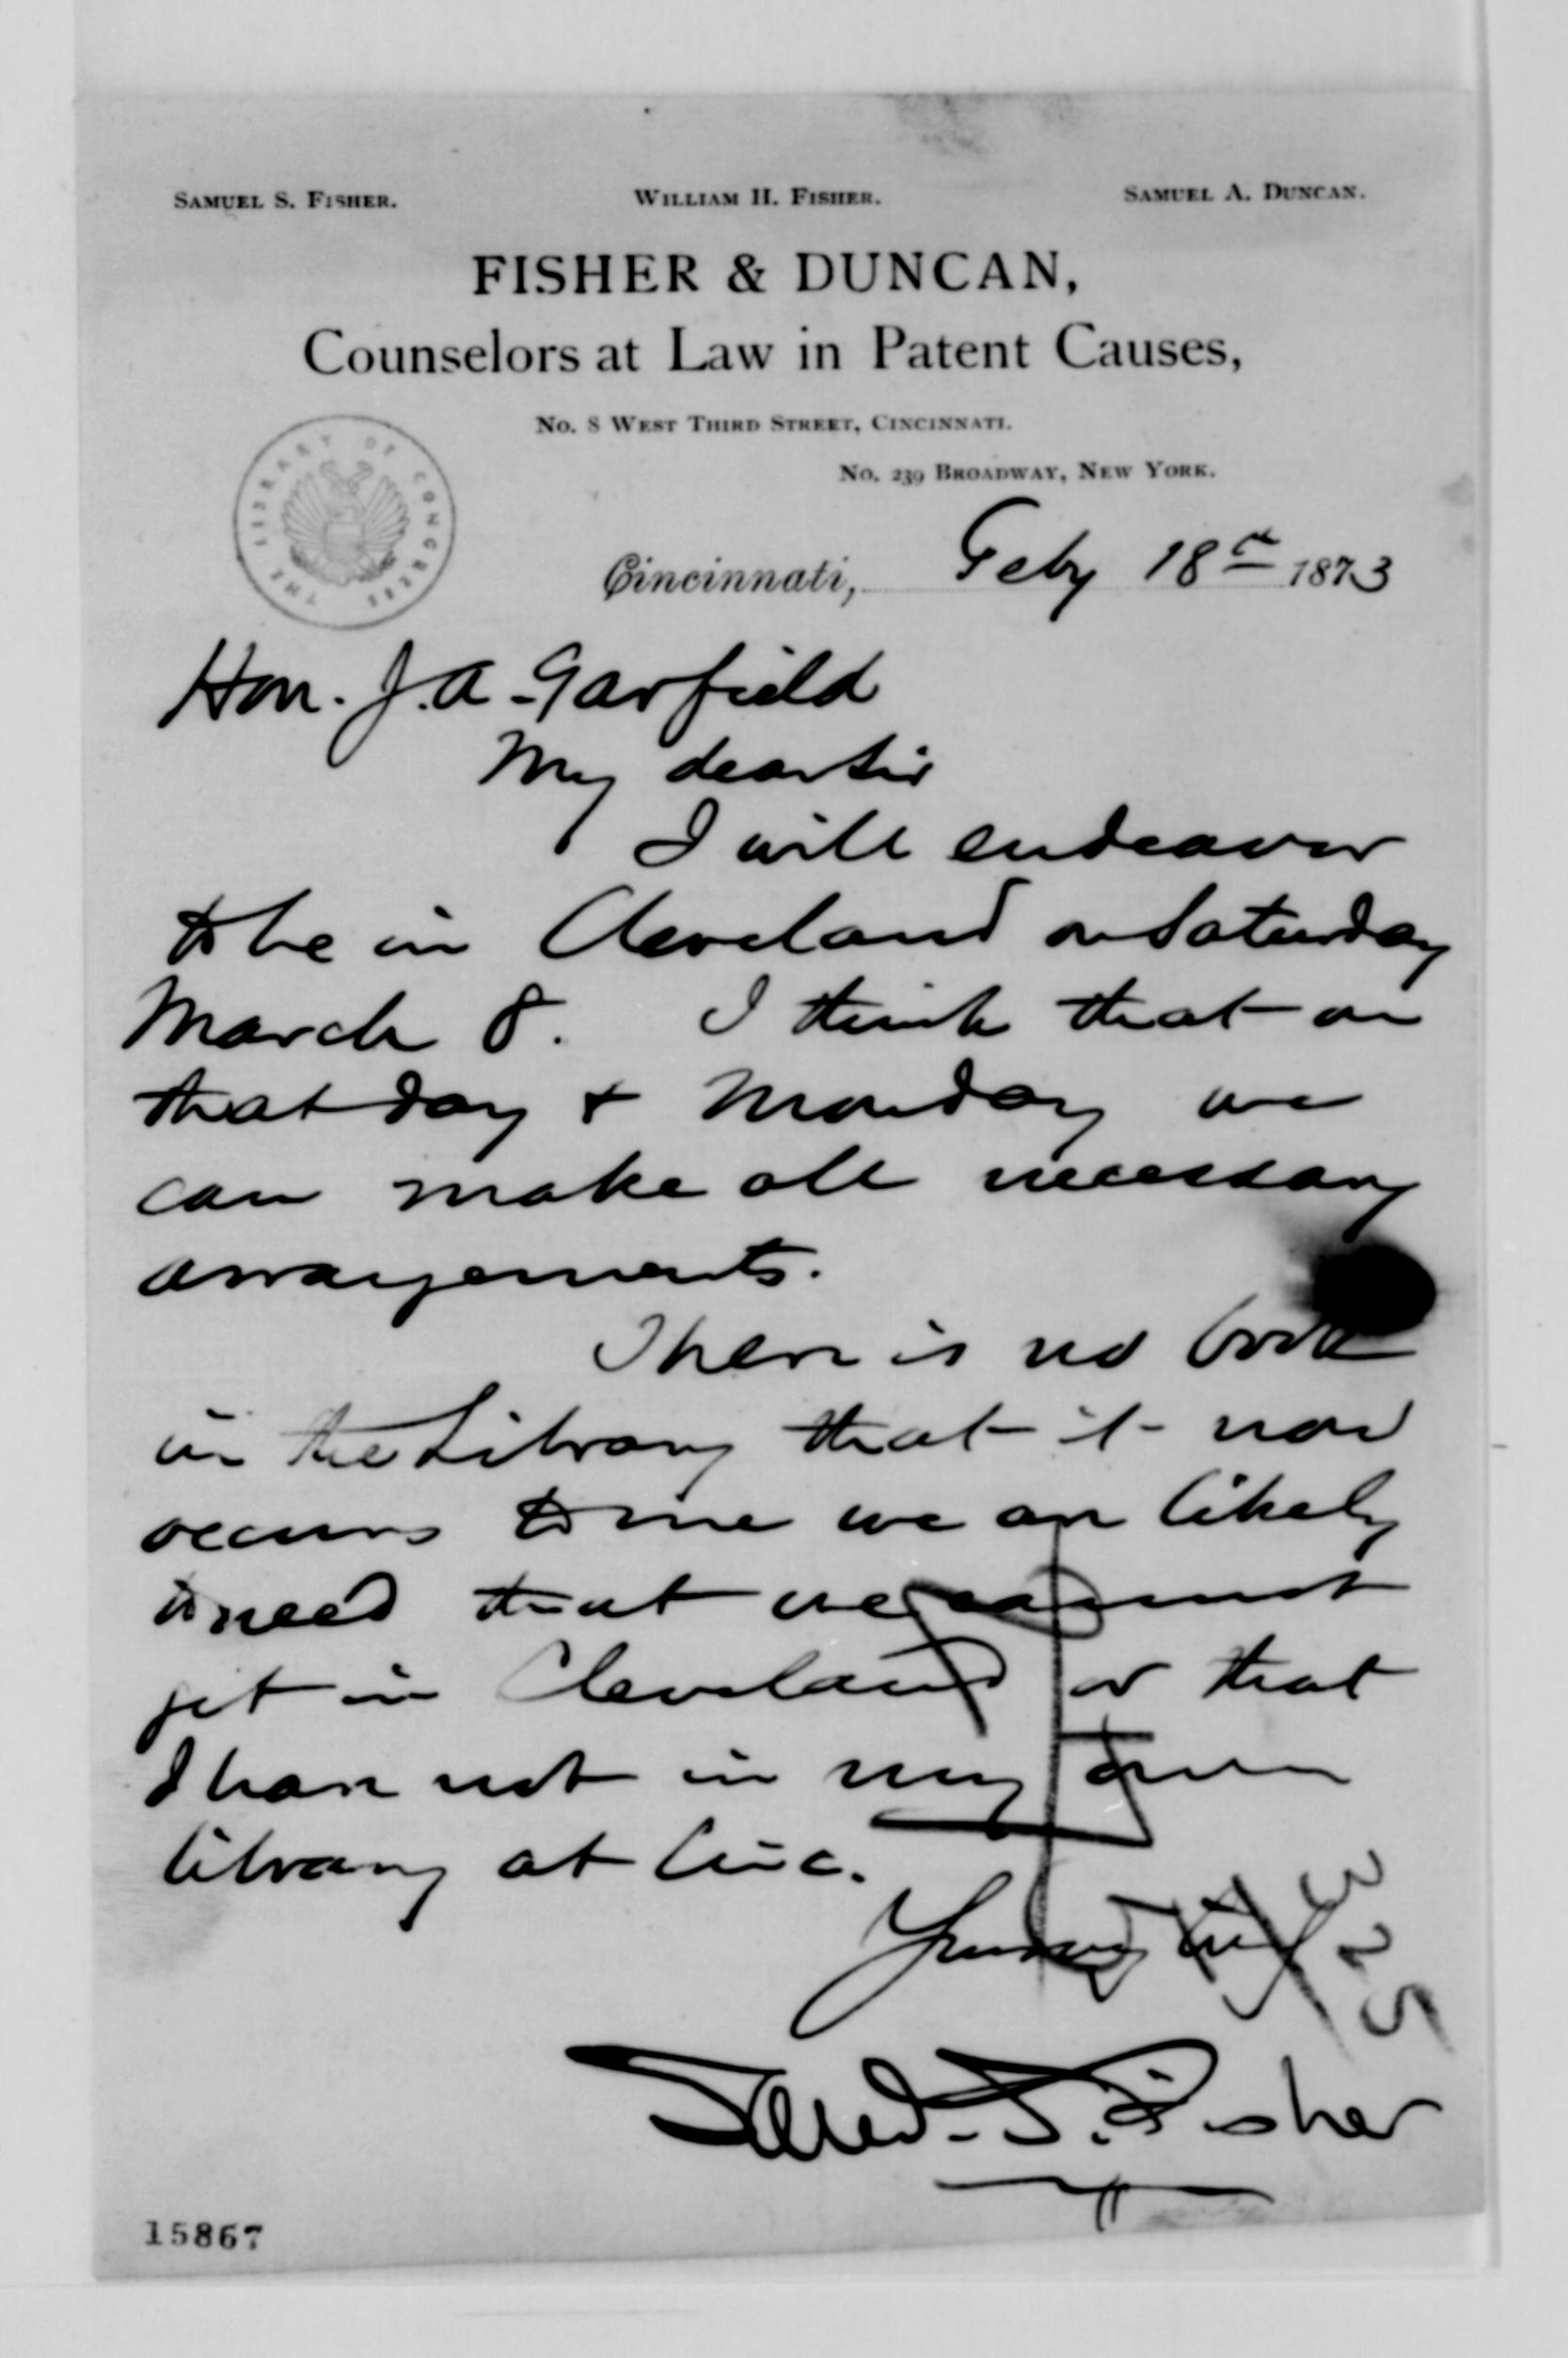 SAMUEL S. FISHER. WILLIAM H. FISHER. SAMUEL A. DUNCAN.
FISHER & DUNCAN,
Counselors at Law in Patent Causes,
No. 8 WEST THIRD STREET, CINCINNATI.
No. 239 BROADWAY, NEW YORK.
THE LIBRARY OF CONGRESS
Cincinnati, Feby 18th 1873
Hon. J. A. Garfield
My dear Sir
I will endeavor
to be in Cleveland on Saturday
March 8. I think that on
that day & Monday we
can make all necessary
arrangements.
There is no book
in the Library that it now
occurs to me we are likely
to need that we cannot
get in Cleveland or that
I have not in my own
library at Cinc.
Yours truly
Saml. S. Fisher
325
15867